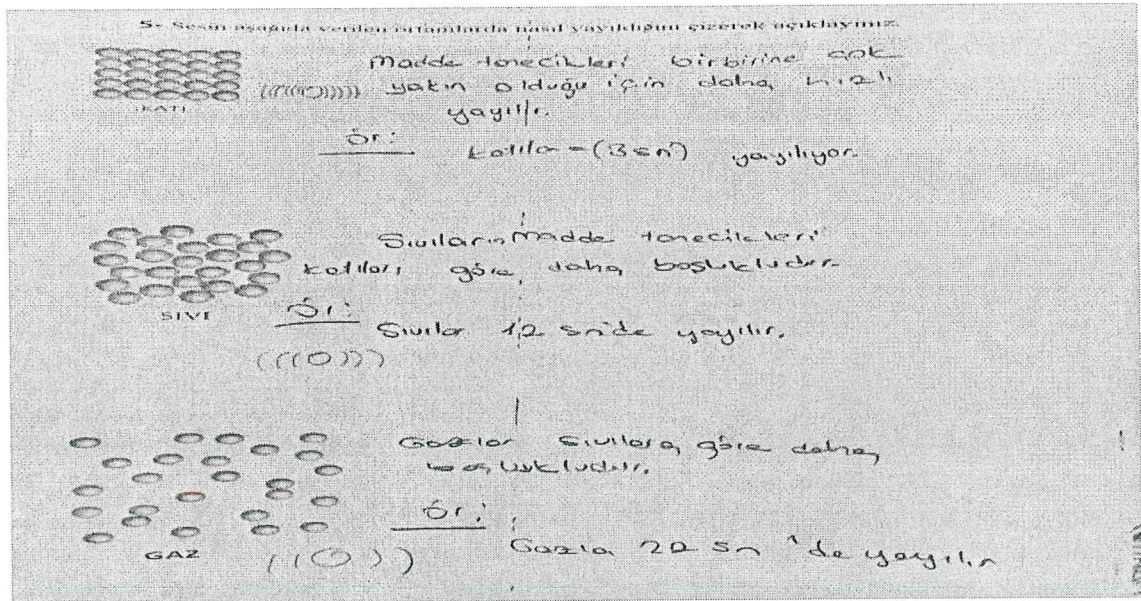 5- Sesin aşağıda verilen ortamlarda nasıl yayıldığını çizerek açıklayınız.
Madde tanecikleri birbirine çok
yakın olduğu için daha hızlı
yayılır.
KATI
Ör:
katılar = (3 sn) yayılıyor.
Sıvıların Madde tanecikleri
katılara göre daha boşlukludur.
SIVI
Ör:
Sıvıla 12 sn'de yayılır.
Gazlar Sıvılara göre daha
boşlukludur.
Ör:
GAZ
Gazla 22 sn'de yayılır